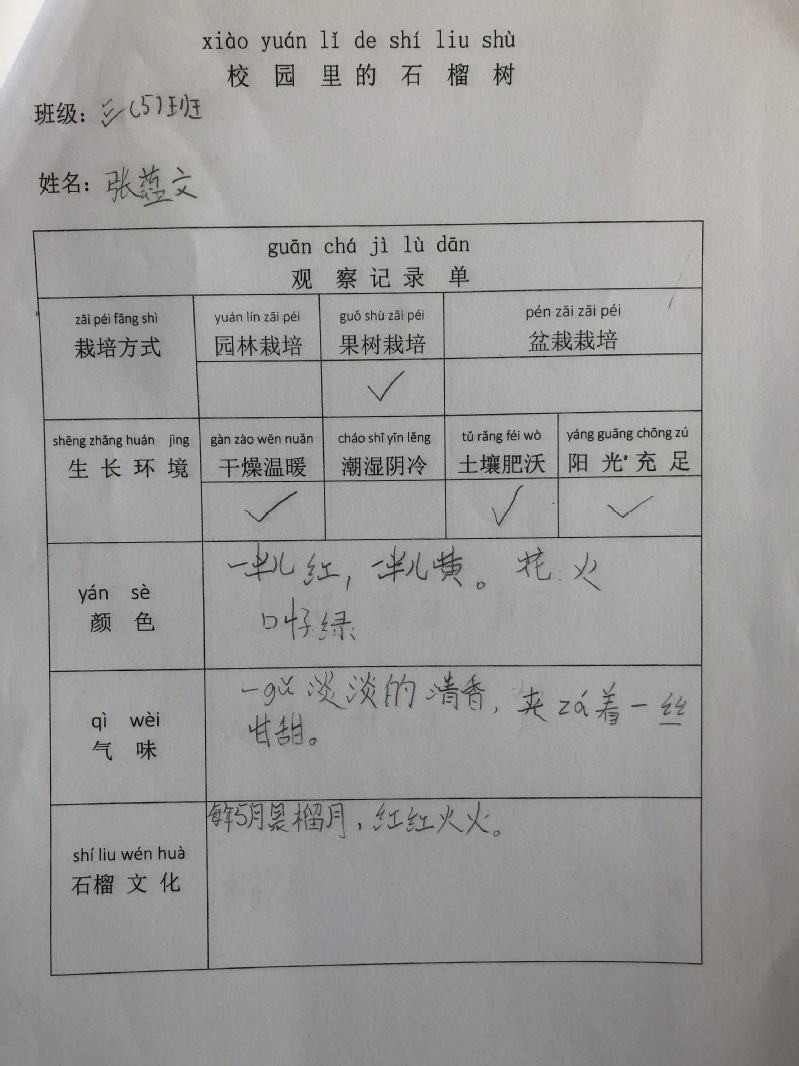 xiào yuán lǐ de shí liu shù
校园里的石榴树
班级：三(5)班
姓名：张蕴文
guān chá jì lù dān
观察记录单
zāi péi fāng shì yuán lín zāi péi guǒ shù zāi péi pén zāi zāi péi
栽培方式 园林栽培 果树栽培 盆栽栽培
✓
shēng zhǎng huán jìng gàn zào wēn nuǎn cháo shī yīn lěng tǔ rǎng féi wò yáng guāng chōng zú
生长环境 干燥温暖 潮湿阴冷 土壤肥沃 阳光充足
✓ ✓ ✓
yán sè
颜色
一半儿红，一半儿黄。花：火
叶子绿
qì wèi
气味
一gǔ淡淡的清香，夹zá着一丝
甘甜。
shí liu wén huà
石榴文化
每年5月是榴月，红红火火。